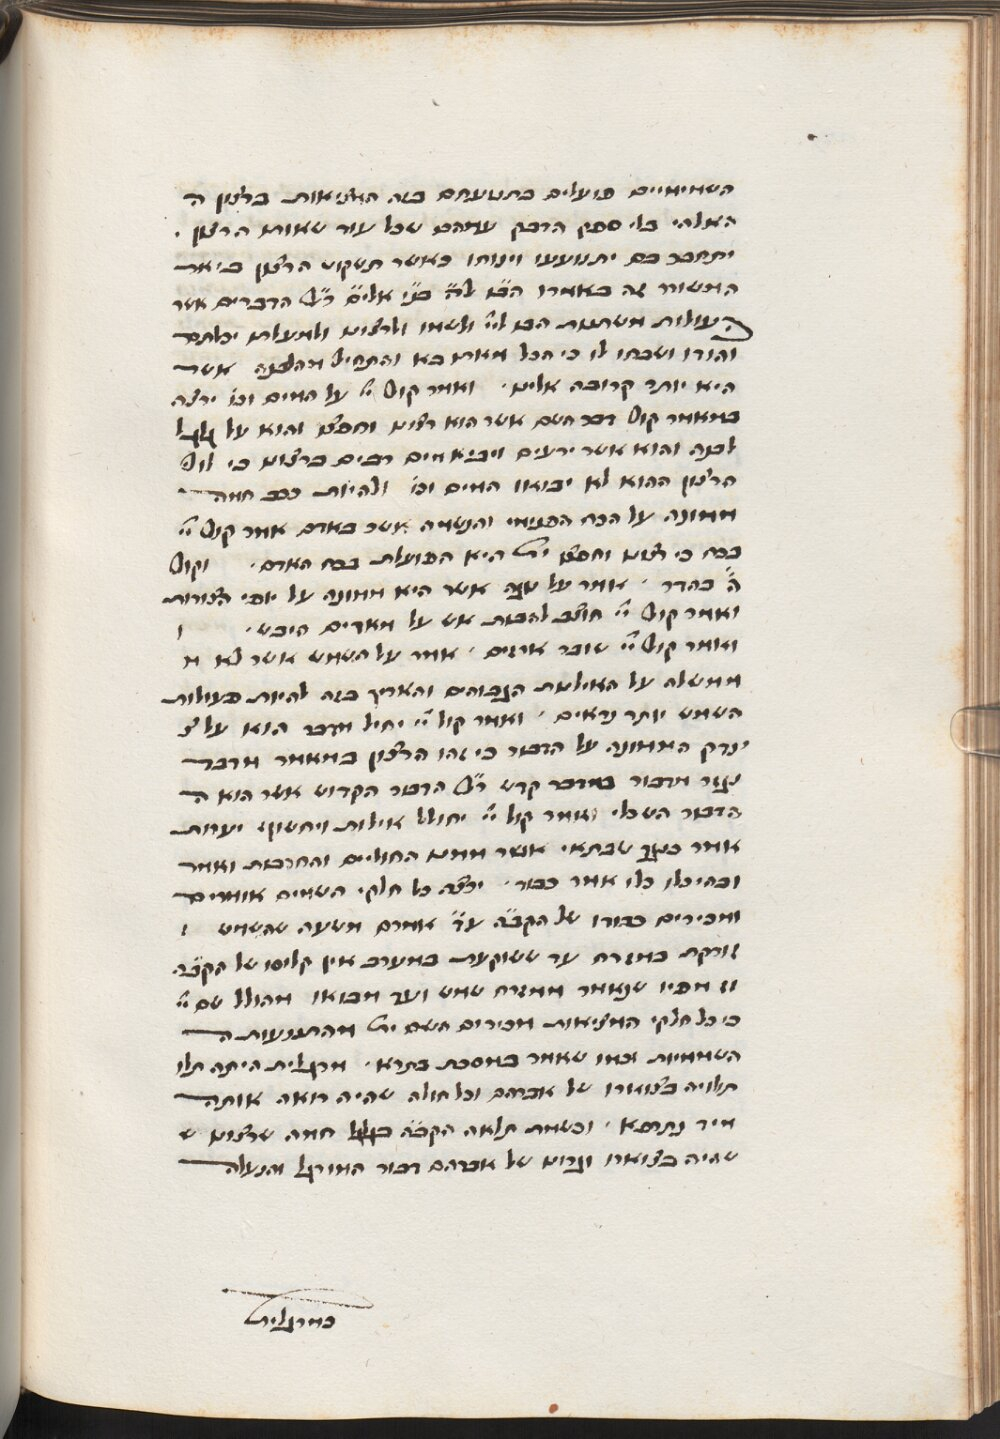 השמימיים פועלים בתנועתם בזה המציאות ברצון ה
האלהי בלי ספק הדבק עמהם שכל עוד שאותו הרצון
יתחבר בם יתנועעו וינוחו כאשר תשקוט הרצון ביאר
המשורר זה באמרו הבו לה׳ בני אלים ר״ל הדברים אשר
פעולות משרתת הבו ליי׳ ולשמו ולרצונו ולמעלתו יכלתם
והודו ושבחו לו כי הכל מאתו בא והתחיל מהלבנה אשר
היא יותר קרובה אלינו ואמר קול יי׳ על המים וכו׳ ירצה
במאמר קול דבר השם אשר הוא רצונו וחפצו והוא על גלגל
לבנה והוא אשר ירעים ויביא מים רבים ברצונו כי לולי
הרצון ההוא לא יבואו המים וכו׳ ולהיות ככב חמה
ממונה על הכח הפנימי והנשמה אשר באדם אמר קול יי׳
בכח כי רצונו וחפצו ית׳ היא הפועלת בכח האדם וקול
ה׳ בהדר אמר על נגה אשר היא ממונה על יופי הצורות
ואמר קול יי׳ חוצב להבות אש על מאדים היבש ו
ואמר קול יי׳ שובר ארזים אמר על השמש אשר לא מ
ממשלה על האילנות הגבוהים והאריך בזה להיות פעולות
השמש יותר נראים ואמר קול יי׳ יחיל מדבר הוא על צ
צדק הממונה על הדבור כי זהו הרצון במאמר מדבר
נגזר מדבור במדבר קדש ר״ל הדבור הקדוש אשר הוא ה
הדבור השכלי ואמר קול יי׳ יחולל אילות ויחשוף יערות
אמר כנגד שבתאי אשר ממנו החוליים והחרבות ואמר
ובהיכלו כלו אמר כבוד ירצה כל חלקי השמים אומרים
ומכירים כבודו של הקב״ה עד אמרם משעה שהשמש ו
זורחת במזרח עד ששוקעת במערב אין קלוסו של הקב״ה
זז מפיו שנאמר ממזרח שמש ועד מבואו מהולל שם יי׳
כי כל חלקי המציאות מכירים השם ית׳ מהתנועות ה
השמימיות וכמו שאמר במסכת בתרא מרגלית היתה תלו
תלויה בצוארו של אברהם וכל חולה שהיה רואה אותה
מיד נתרפא וכשמת תלאה הקב״ה בגלגל חמה שרצונו ש
שהיה בצוארו וגרונו של אברהם דבור המורגל והנעלה
כמרגלית